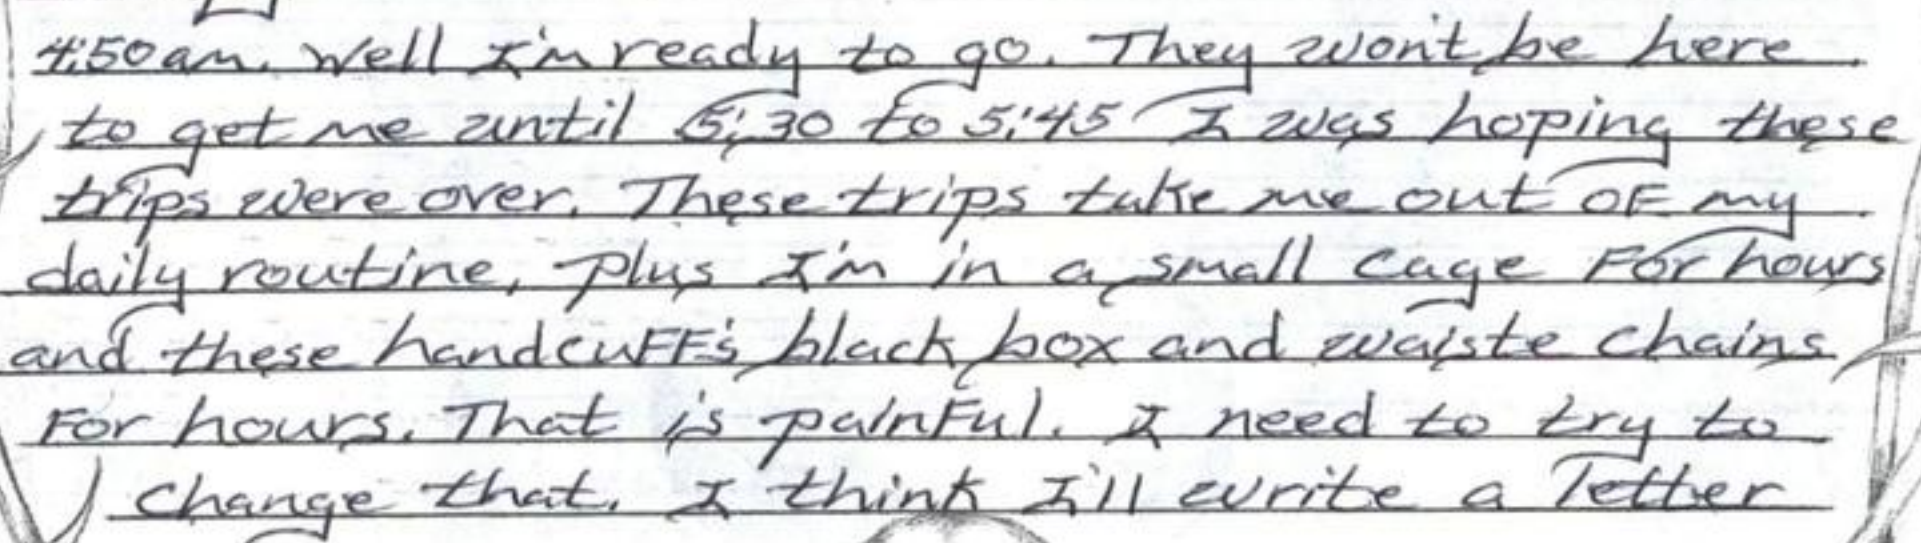 4:50am. Well I'm ready to go. They won't be here
to get me until 5:30 to 5:45 I was hoping these
trips were over. These trips take me out oF my
daily routine, plus I'm in a small cage For hours
and these handcuFF's black box and waiste chains
For hours. That is painFul. I need to try to
change that. I think I'll write a letter